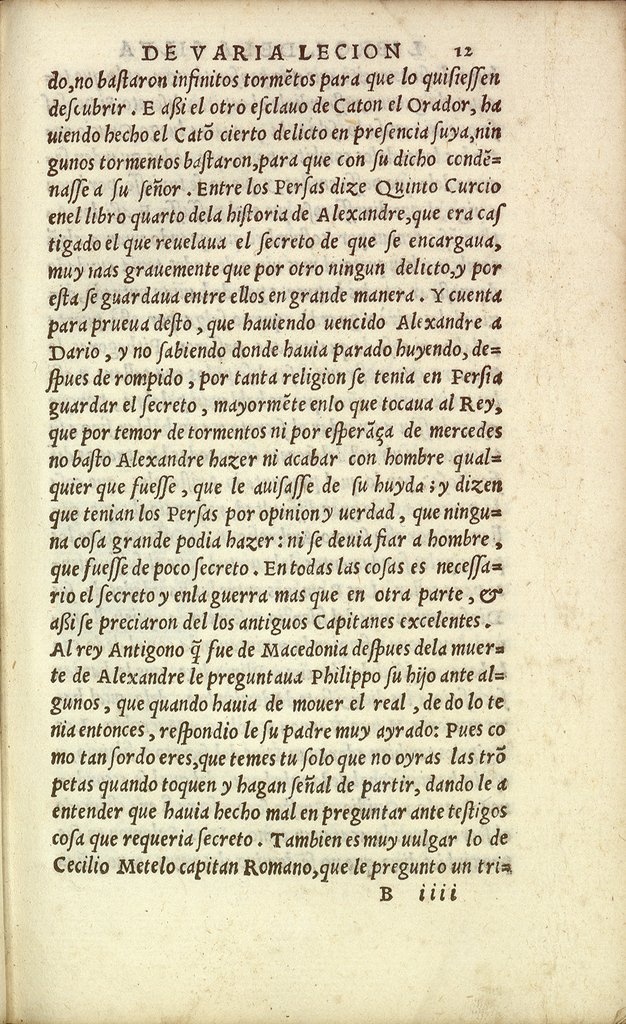 DE VARIA LECION 12
do,no baſtaron infinitos tormẽtos para que lo quiſieſſen
deſcubrir . E aßi el otro eſclauo de Caton el Orador, ha
uiendo hecho el Catõ cierto delicto en preſencia ſuya,nin
gunos tormentos baſtaron,para que con ſu dicho condẽ=
naſſe a ſu ſeñor . Entre los Perſas dize Quinto Curcio
enel libro quarto dela hiſtoria de Alexandre,que era caſ
tigado el que reuelaua el ſecreto de que ſe encargaua,
muy mas grauemente que por otro ningun delicto,y por
eſta ſe guardaua entre ellos en grande manera . Y cuenta
para prueua deſto , que hauiendo uencido Alexandre a
Dario , y no ſabiendo donde hauia parado huyendo, de=
ſpues de rompido , por tanta religion ſe tenia en Perſia
guardar el ſecreto , mayormẽte enlo que tocaua al Rey,
que por temor de tormentos ni por eſperãça de mercedes
no baſto Alexandre hazer ni acabar con hombre qual=
quier que fueſſe , que le auiſaſſe de ſu huyda ; y dizen
que tenian los Perſas por opinion y uerdad , que ningu=
na coſa grande podia hazer : ni ſe deuia fiar a hombre ,
que fueſſe de poco ſecreto . En todas las coſas es neceſſa=
rio el ſecreto y enla guerra mas que en otra parte , &
aßi ſe preciaron del los antiguos Capitanes excelentes .
Al rey Antigono q̃ fue de Macedonia deſpues dela muer=
te de Alexandre le preguntaua Philippo ſu hijo ante al=
gunos , que quando hauia de mouer el real , de do lo te
nia entonces , reſpondio le ſu padre muy ayrado: Pues co
mo tan ſordo eres,que temes tu ſolo que no oyras las trõ
petas quando toquen y hagan ſeñal de partir, dando le a
entender que hauia hecho mal en preguntar ante teſtigos
coſa que requeria ſecreto . Tambien es muy uulgar lo de
Cecilio Metelo capitan Romano,que le pregunto un tri=
B iiii